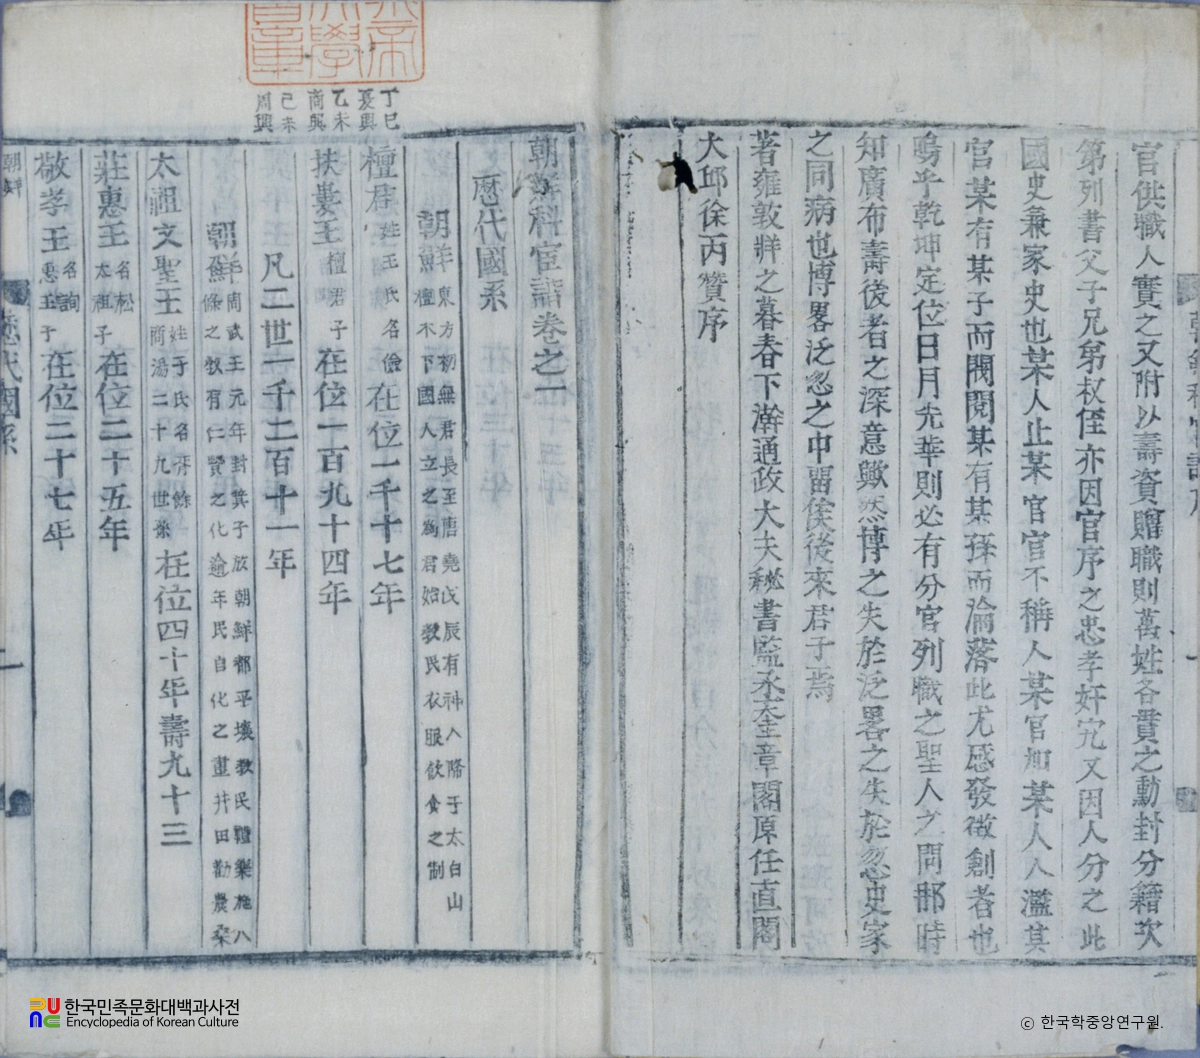 官供職人實之又附以壽資贈職則萬姓各貫之勳封分籍次
第列書父子兄弟叔侄亦因官序之忠孝奸宄又因人分之此
國史兼家史也某人止某官官不稱人某官加某人人濫其
官某有某子而閥閱某有某孫而淪落此尤感發徵創者也
嗚乎乾坤定位日月先華則必有分官列職之聖人之問郡時
知廣布壽後者之深意歟然博之失於泛畧之失於忽史家
之同病也博畧泛忽之中留俟後來君子焉
著雍敦牂之暮春下澣通政大夫秘書監丞奎章閣原任直閣
大邱徐丙贊序
丁巳
夏興
乙未
南興
己未
周興
朝鮮科宦譜卷之一
歷代國系
朝鮮 東方初無君長至唐堯戊辰有神人降于太白山
檀木下國人立之爲君始敎民衣服飮食之制
檀君 姓王氏名儉 在位一千十七年
扶婁王 檀君子 在位一百九十四年
凡二世一千二百十一年
朝鮮 周武王元年封箕子放朝鮮都平壤敎民禮樂施八
條之敎有仁賢之化逾年民自化之畫井田勸農桑
太祖文聖王 姓子氏名胥餘
商湯二十九世孫 在位四十年壽九十三
莊惠王 名松
太祖子 在位二十五年
敬孝王 名詢
惠王子 在位二十七年
朝鮮
歷代國系
한국민족문화대백과사전
Encyclopedia of Korean Culture
© 한국학중앙연구원.